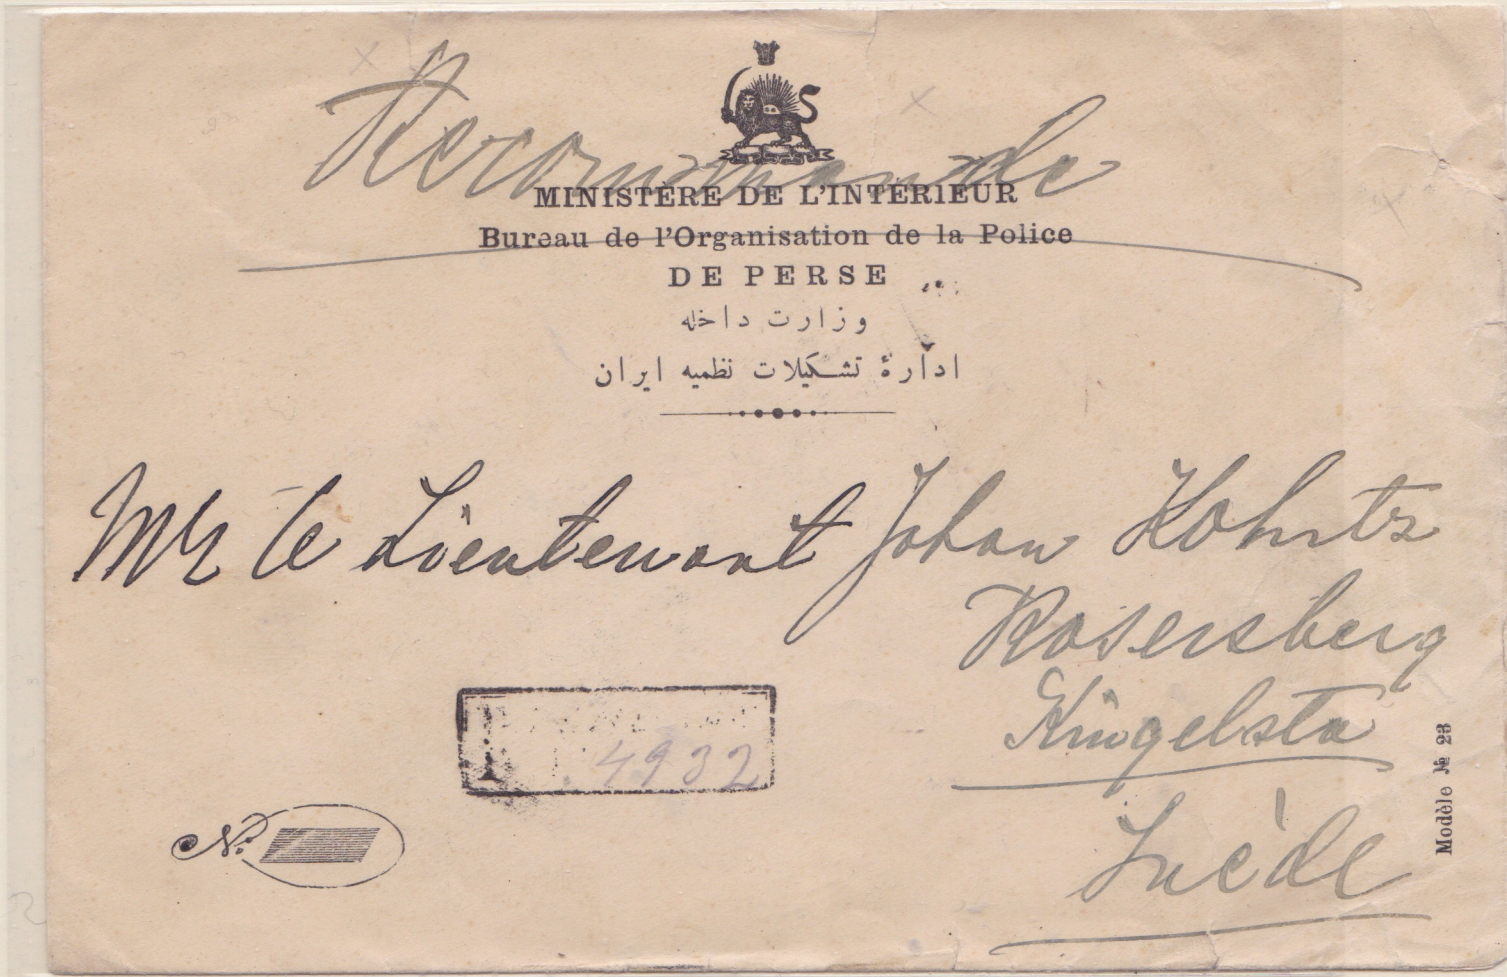 Recommandé
MINISTÈRE DE L'INTÉRIEUR
Bureau de l'Organisation de la Police
DE PERSE
وزارت داخله
ادارهٔ تشکیلات نظمیه ایران
Mr le Lieutenant Johan Kohntz
Rosersberg
Kingelsta
Suède
R
4932
No.
Modèle № 23